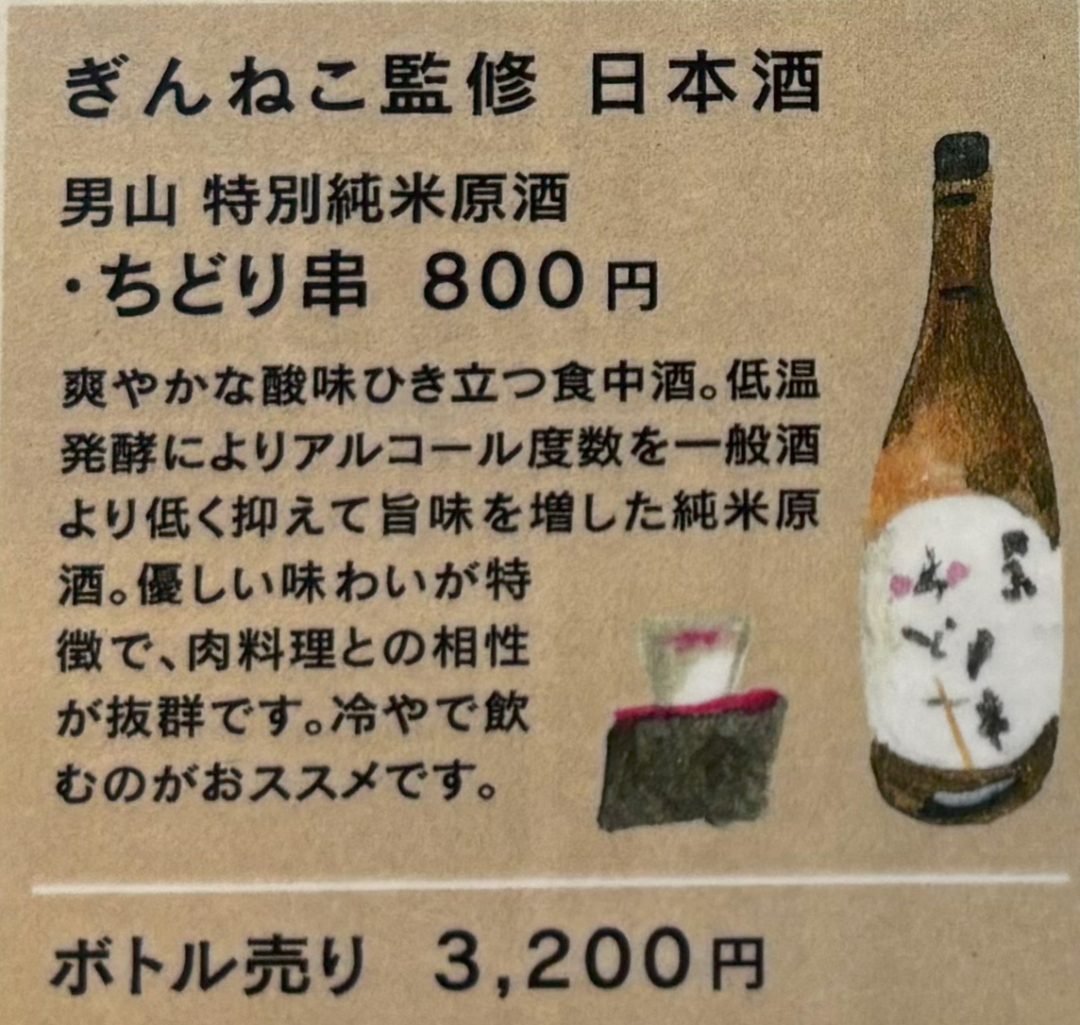 ぎんねこ監修 日本酒
男山 特別純米原酒
・ちどり串 800円
爽やかな酸味ひき立つ食中酒。低温
発酵によりアルコール度数を一般酒
より低く抑えて旨味を増した純米原
酒。優しい味わいが特
徴で、肉料理との相性
が抜群です。冷やで飲
むのがおススメです。
ボトル売り 3,200円